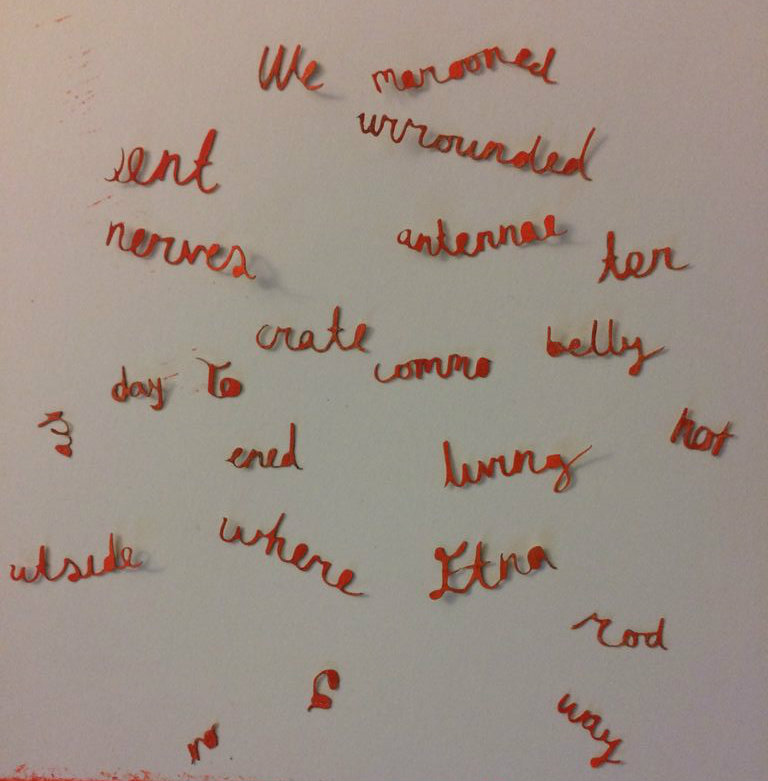 We marooned
sent urrounded
nerves antennae ter
crate commo belly
day To
hot
ened living
utside where Etna
rod
S
no way